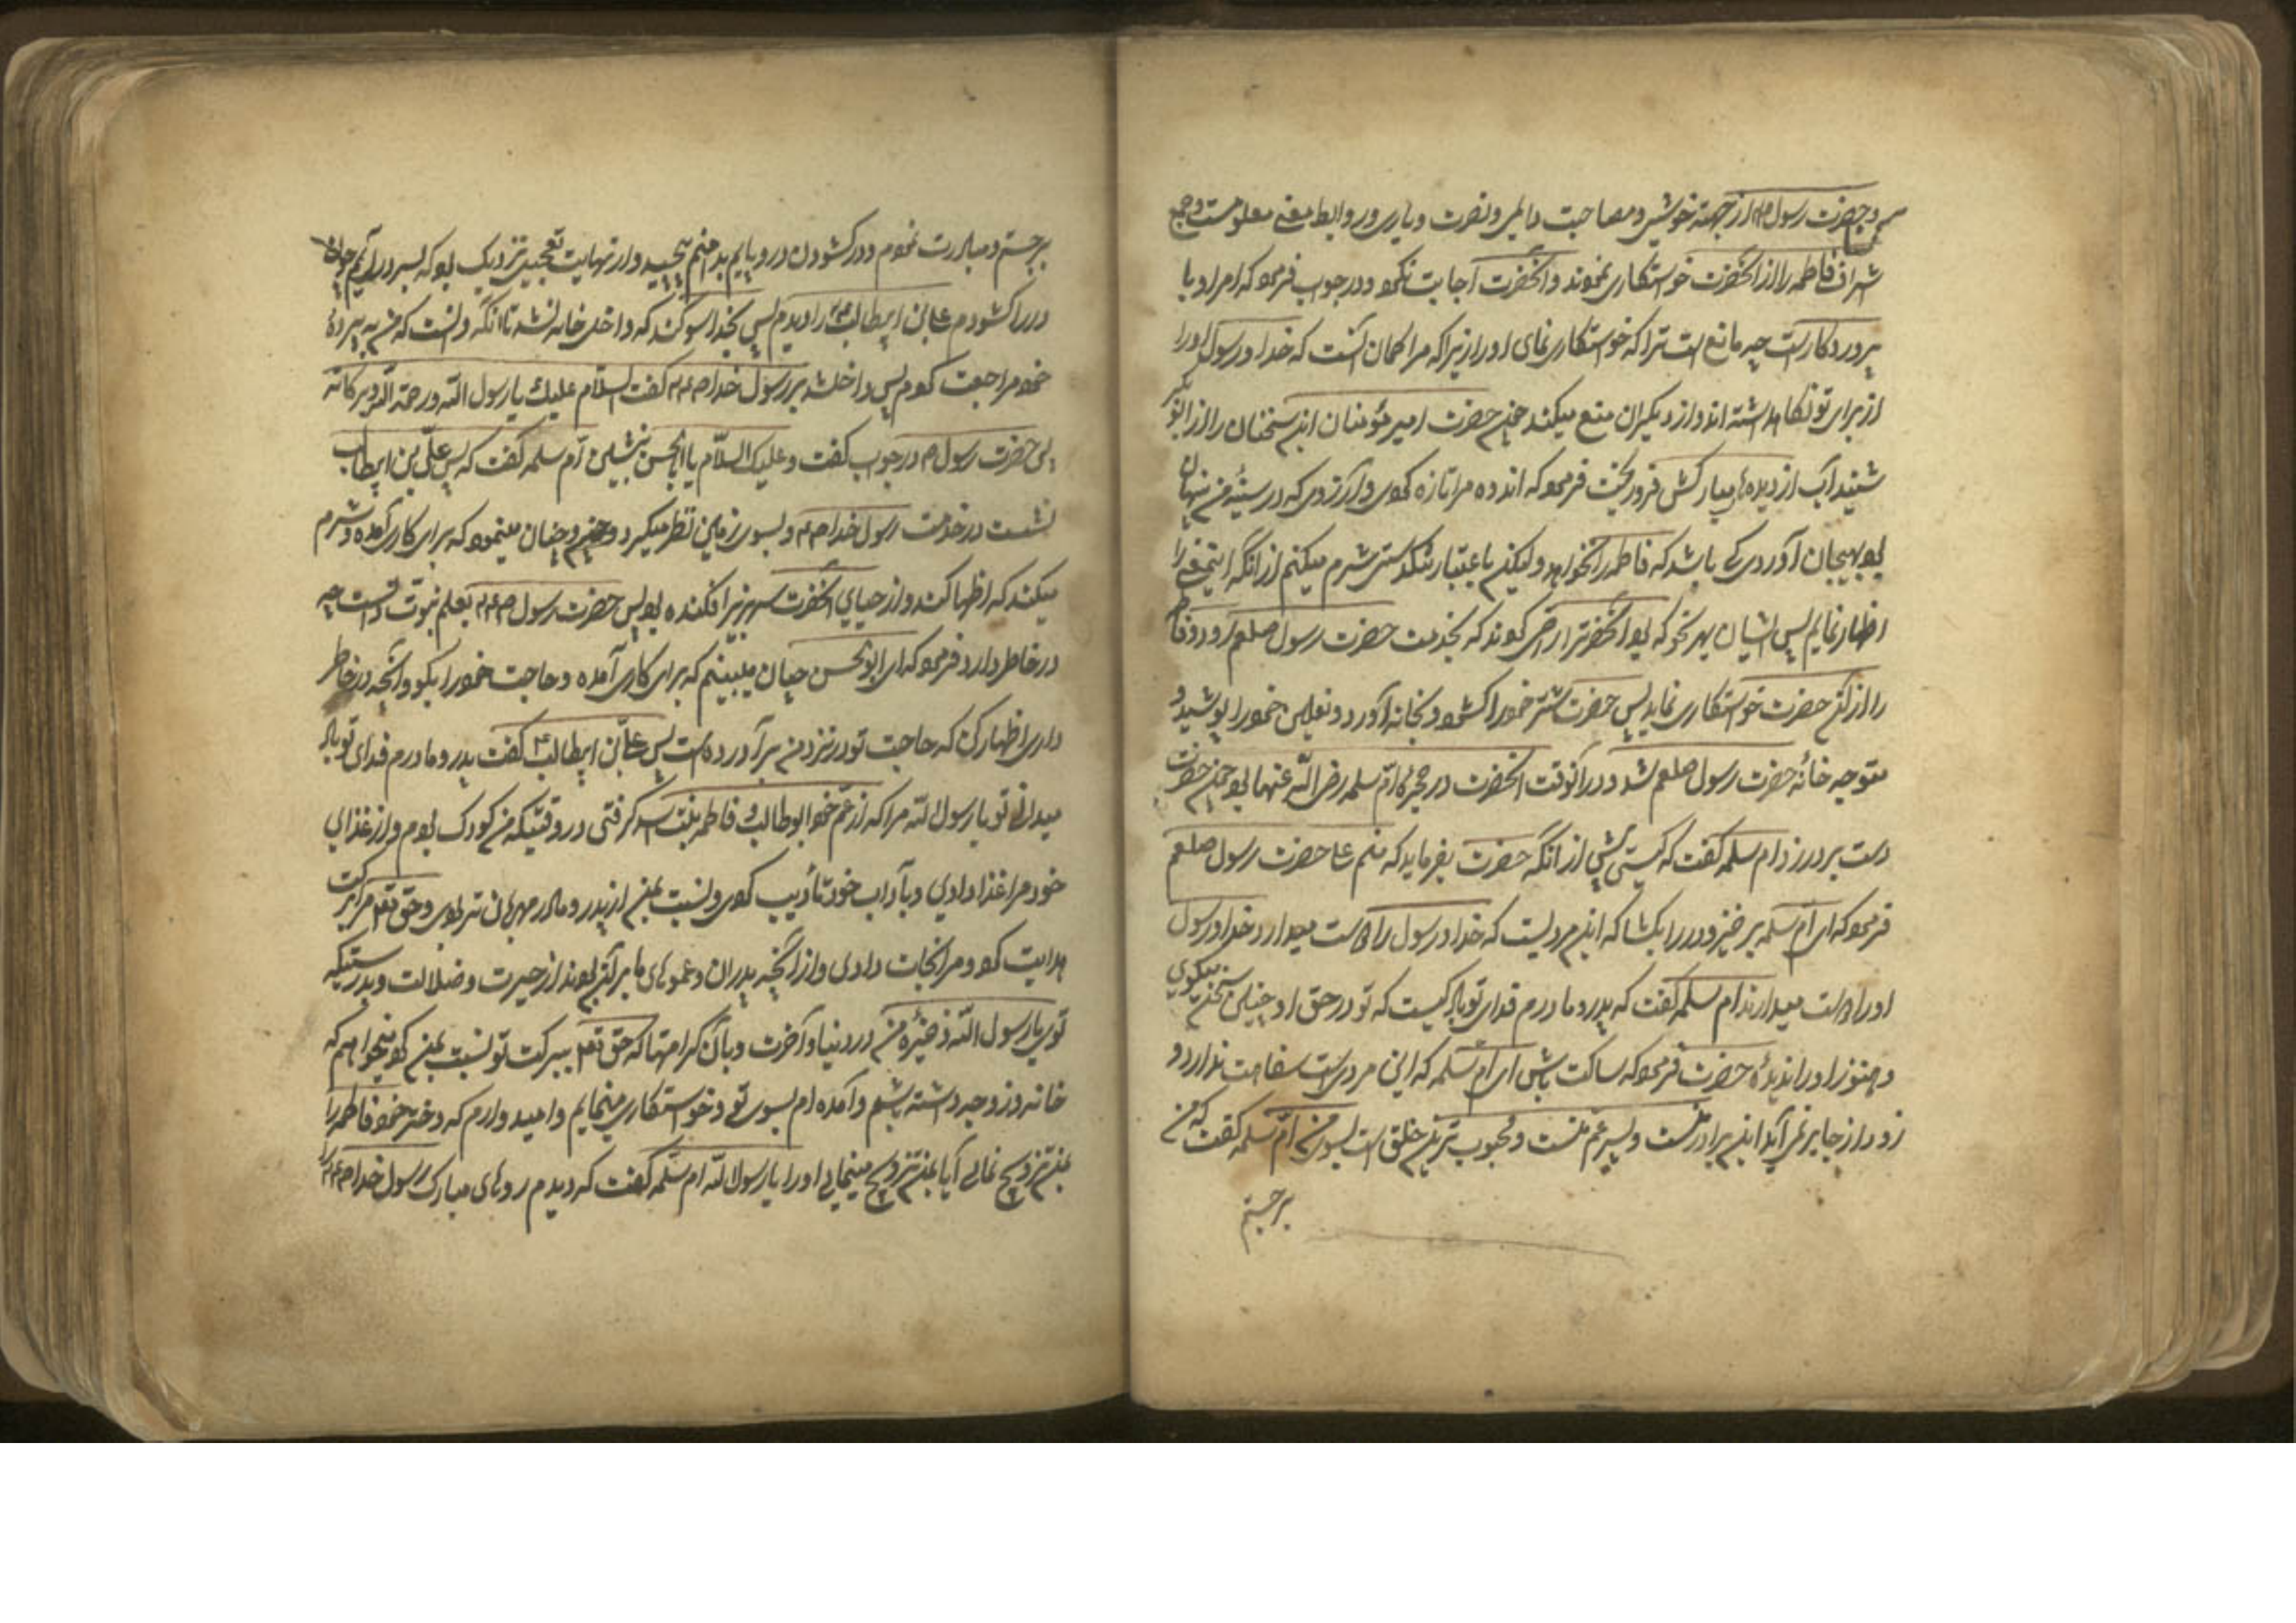 حضرت رسول از جهته خویشی و مصاحبت دایمی و نصرت و یاری و روابط معنی معلومست و جمع
شراف فاطمه را از آنحضرت خواستکاری نمودند و آنحضرت اجابت نکمو و در جوب فرمو که امر او با
پروردکارست چه مانع است ترا که خواستکاری نمای او را زیرا که مرا کمان آنست که خدا و رسول او را
از برای تو نکاه داشته اند و از دیکران منع میکند حضرت امیر مؤمنان این سخنان را از ابو بکر
شنید آب از دیده های مبارکش فرو ریخت فرمو که اندوه مرا تازه کموی و آرزوی که در سینهٔ من پنهان
بو بهیجان آوردی که باشد که فاطمه را نخواهد ولیکن باعتبار تنکدستی شرم میکنم از آنکه اینمعنی را
اظهار نمایم پس ایشان بهر نحو که بو آنحضرترا راضی کموند که بخدمت حضرت رسول صلعم رود و فاطمه
را از آن حضرت خواستکاری نماید پس حضرت شتر خمو را کشمو و بخانه آورد و نعلین خمو را پوشید و
متوجه خانهٔ حضرت رسول صلعم شد و در آنوقت آنحضرت در حجرهٔ ام سلمه رضی الله عنها بو حضرت
دست بر در زد ام سلمه کفت که کیستی پیش از آنکه حضرت بفرماید که منم علی حضرت رسول صلعم
فرمو که ای ام سلمه برخیز و در را بکشا که این مردیست که خدا و رسول را دوست میدارد و خدا و رسول
او را دوست میدارند ام سلمه کفت که پدر و مادرم فدای تو باد کیست که تو در حق او چنین سخن میکوی
و هنوز او را ندیدهٔ حضرت فرمو که ساکت باش ای ام سلمه که این مردی است سفاهت ندارد و
زود از جا بر نمی آید این برادر منست و پسر عم منست و محبوب ترین خلق است بسوی من ام سلمه کفت که من
برجستم
برجستم و مبادرت نمودم و در کشودن در و پایم بدامنم پیچید و از نهایت تعجیل نزدیک بو که بسر در آیم چون
در را کشودم علی بن ابیطالب را دیدم پس بخدا سوکند که داخل خانه نشد تا آنکه دانست که من به پردهٔ
خمو مراجعت کموم پس داخل شد بر رسول خدا کفت السلام علیک یا رسول الله و رحمة الله و برکاته
پس حضرت رسول در جوب کفت و علیک السلام یا ابالحسن بنشین ام سلمه کفت که پس علی بن ابیطالب
نشست در خدمت رسول خدا و بسوی زمین نظر میکرد و چنان مینمو که برای کاری آمده و شرم
میکند که اظهار کند و از حیای آنحضرت سر بزیر افکنده بو پس حضرت رسول بعلم نبوت دانست چه
در خاطر دارد فرمو که ای ابوالحسن چنان میبینم که برای کاری آمده و حاجت خمو را بکو و آنچه در خاطر
داری اظهار کن که حاجت تو در نزد من برآورده است پس علی بن ابیطالب کفت پدر و مادرم فدای تو باد
میدانی تو یا رسول الله مرا که از عم خمو ابو طالب و فاطمه بنت اسد کرفتی در وقتیکه من کودک بوم و از غذای
خود مرا غذا دادی و بآداب خود تأدیب کموی و نسبت بمن از پدر و مادر مهربان تر بوی و حق تعالی مرا ببرکت
هدایت کمو و مرا نجات دادی و از آنچه پدران و عموهای ما بر آن بوند از حیرت و ضلالت و بدرستیکه
توی یا رسول الله ذخیرهٔ من در دنیا و آخرت و بآن کرامتها که حق تعالی ببرکت تو نسبت بمن کمو میخواهم که
خانه و زوجه داشته باشم و آمده ام بسوی تو و خواستکاری مینمایم و امیدوارم که دختر خمو فاطمه را
بمن تزویج نمای آیا بمن تزویج مینمای او را یا رسول الله ام سلمه کفت که دیدم روهای مبارک رسول خدا را